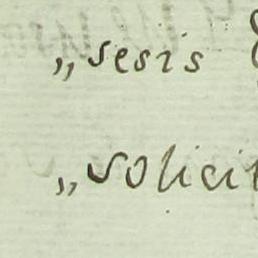 „sesis
„solicit